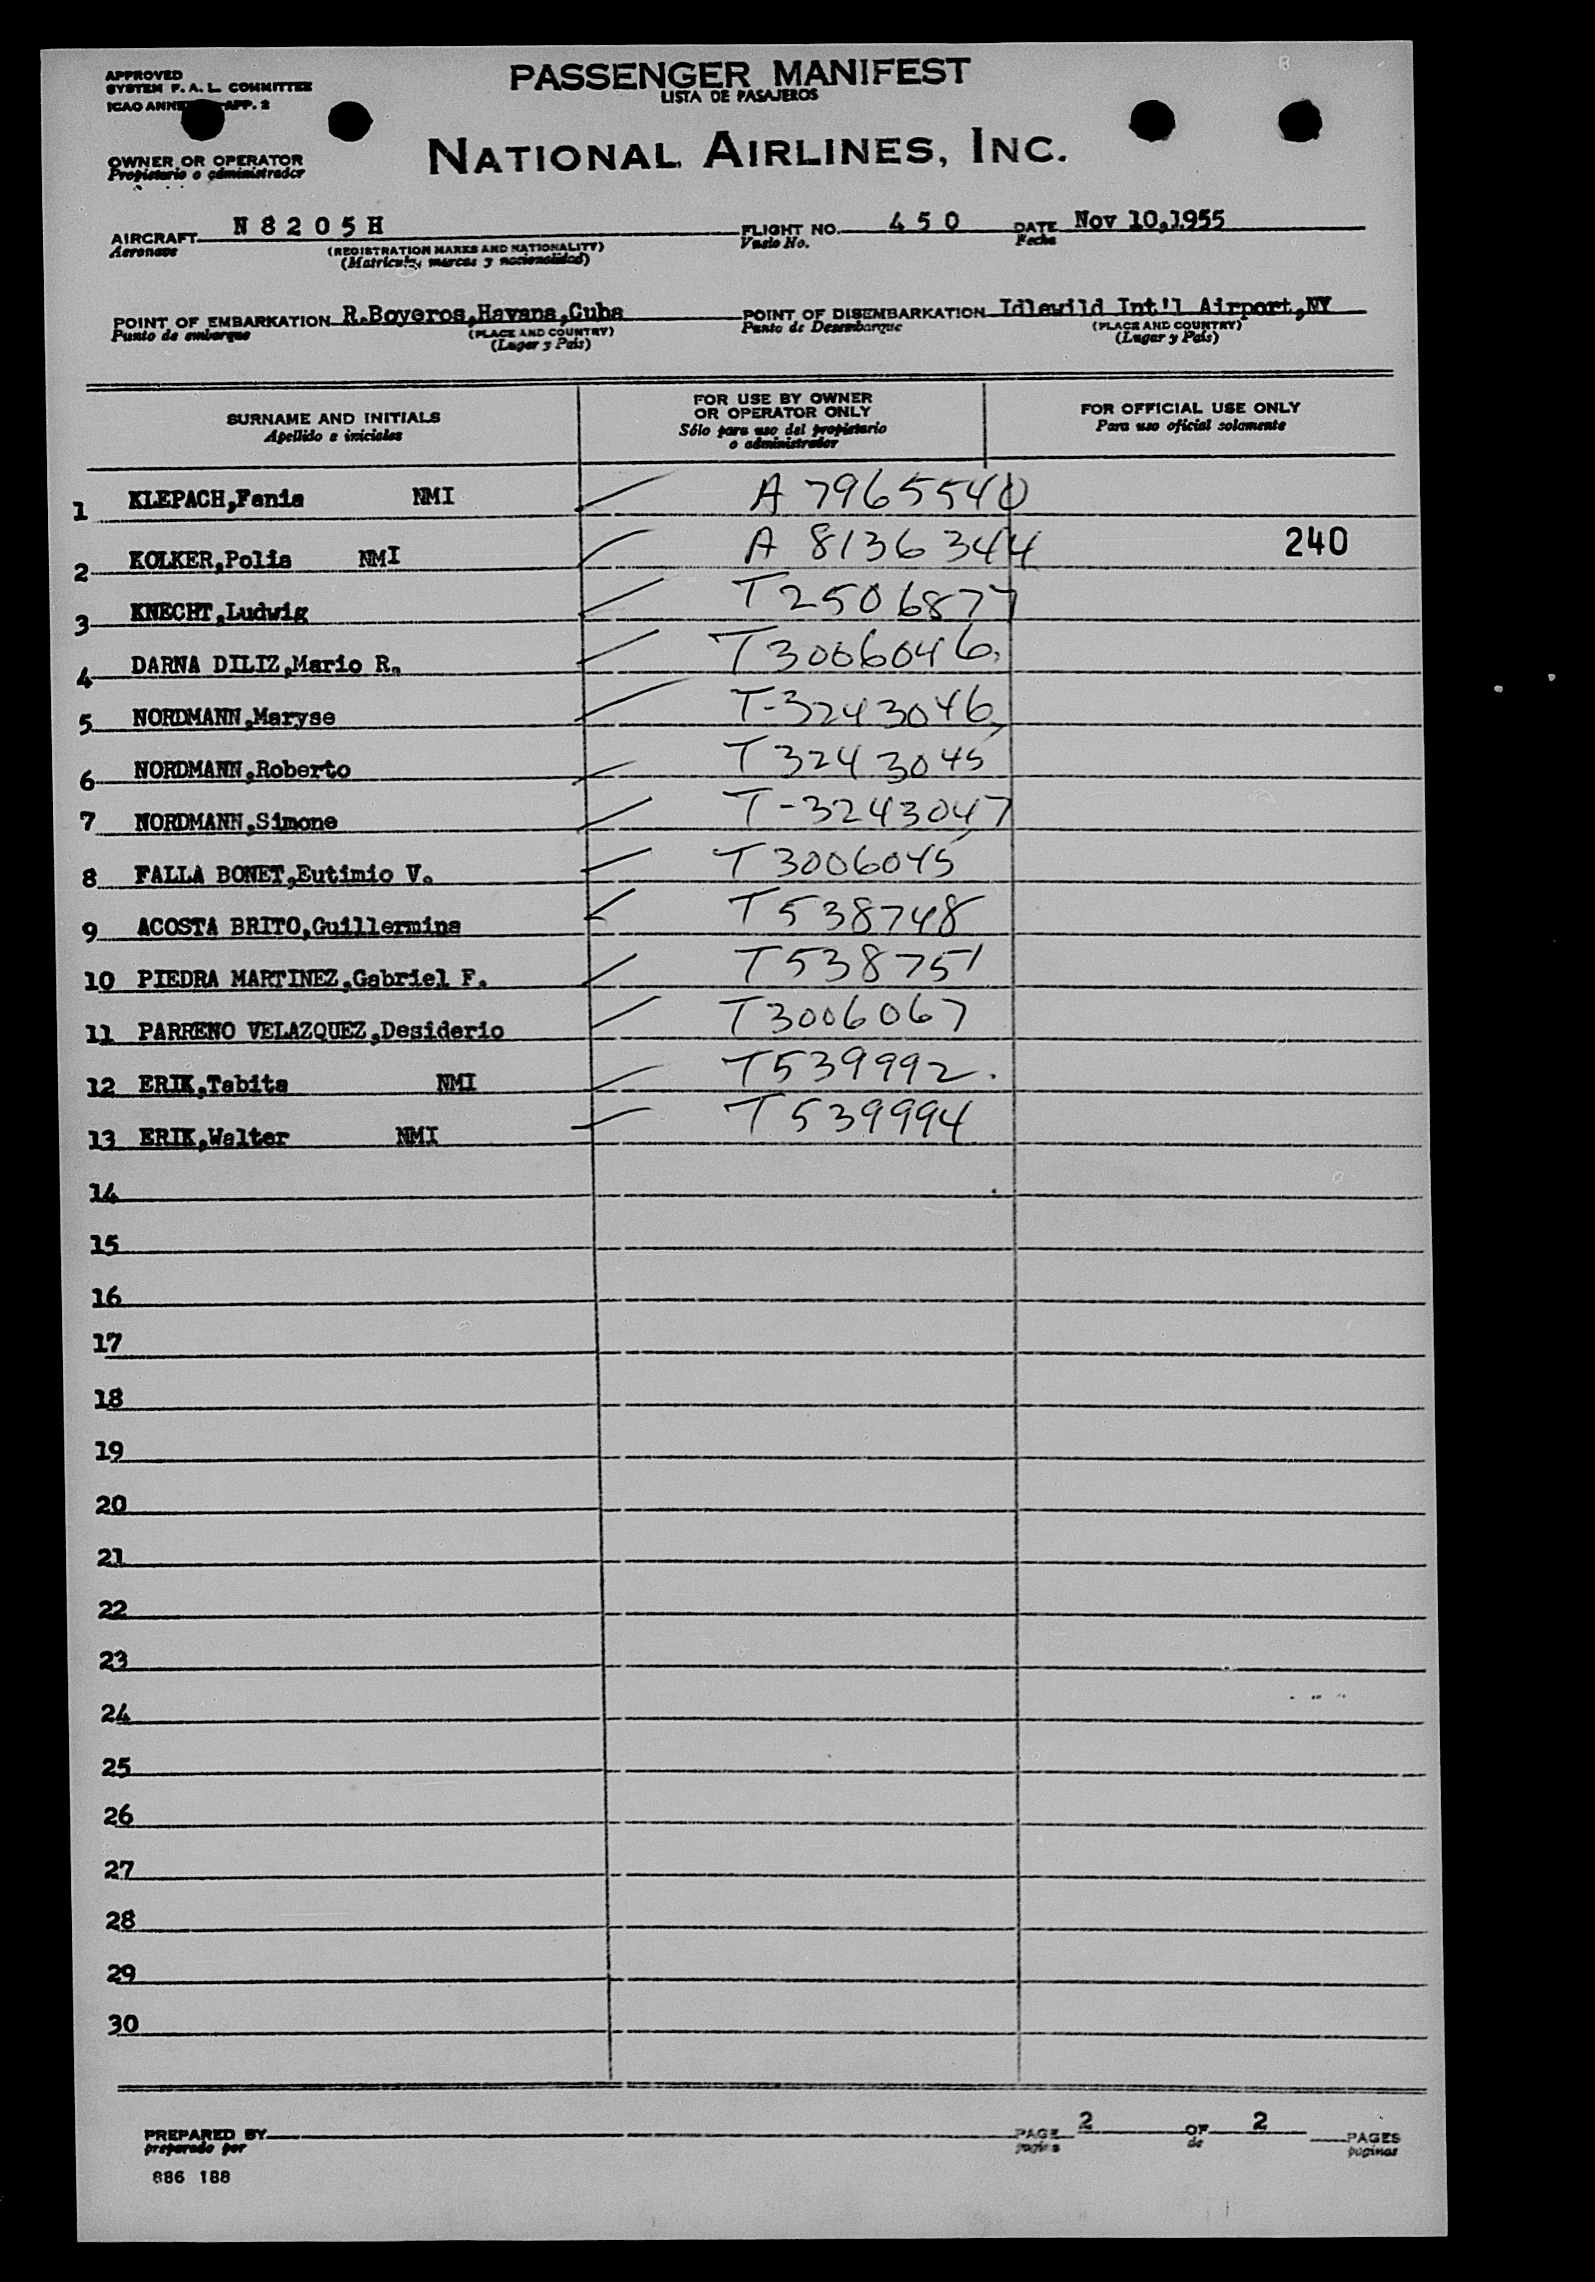 APPROVED
SYSTEM F. A. L. COMMITTEE
ICAO APP. 2
PASSENGER MANIFEST
LISTA DE PASAJEROS
NATIONAL AIRLINES, INC.
OWNER OR OPERATOR
Propietario o administrador
AIRCRAFT N 8 2 0 5 H FLIGHT NO. 4 5 0 DATE Nov 10,1955
Aeronave (REGISTRATION MARKS AND NATIONALITY) Vuelo No. Fecha
(Matricula, marcas y nacionalidad)
POINT OF EMBARKATION R.Boyeros,Havana,Cuba POINT OF DISEMBARKATION Idlewild Int'l Airport,NY
Punto de embarque (PLACE AND COUNTRY) Punto de Desembarque (PLACE AND COUNTRY)
(Lugar y Pais) (Lugar y Pais)
SURNAME AND INITIALS FOR USE BY OWNER OR OPERATOR ONLY FOR OFFICIAL USE ONLY
Apellido e iniciales Sólo para uso del propietario o administrador Para uso oficial solamente
1 KLEPACH,Fania NMI A 7965540
2 KOLKER,Polia NMI A 8136344 240
3 KNECHT,Ludwig T2506877
4 DARNA DILIZ,Mario R. T3006046
5 NORDMANN,Maryse T-3243046
6 NORDMANN,Roberto T3243045
7 NORDMANN,Simone T-3243047
8 FALLA BONET,Eutimio V. T3006045
9 ACOSTA BRITO,Guillermina T538748
10 PIEDRA MARTINEZ,Gabriel F. T538751
11 PARRENO VELAZQUEZ,Desiderio T3006067
12 ERIK,Tabita NMI T539992.
13 ERIK,Walter NMI T539994
14
15
16
17
18
19
20
21
22
23
24
25
26
27
28
29
30
PREPARED BY PAGE 2 OF 2 PAGES
preparado por pagina de paginas
886 188